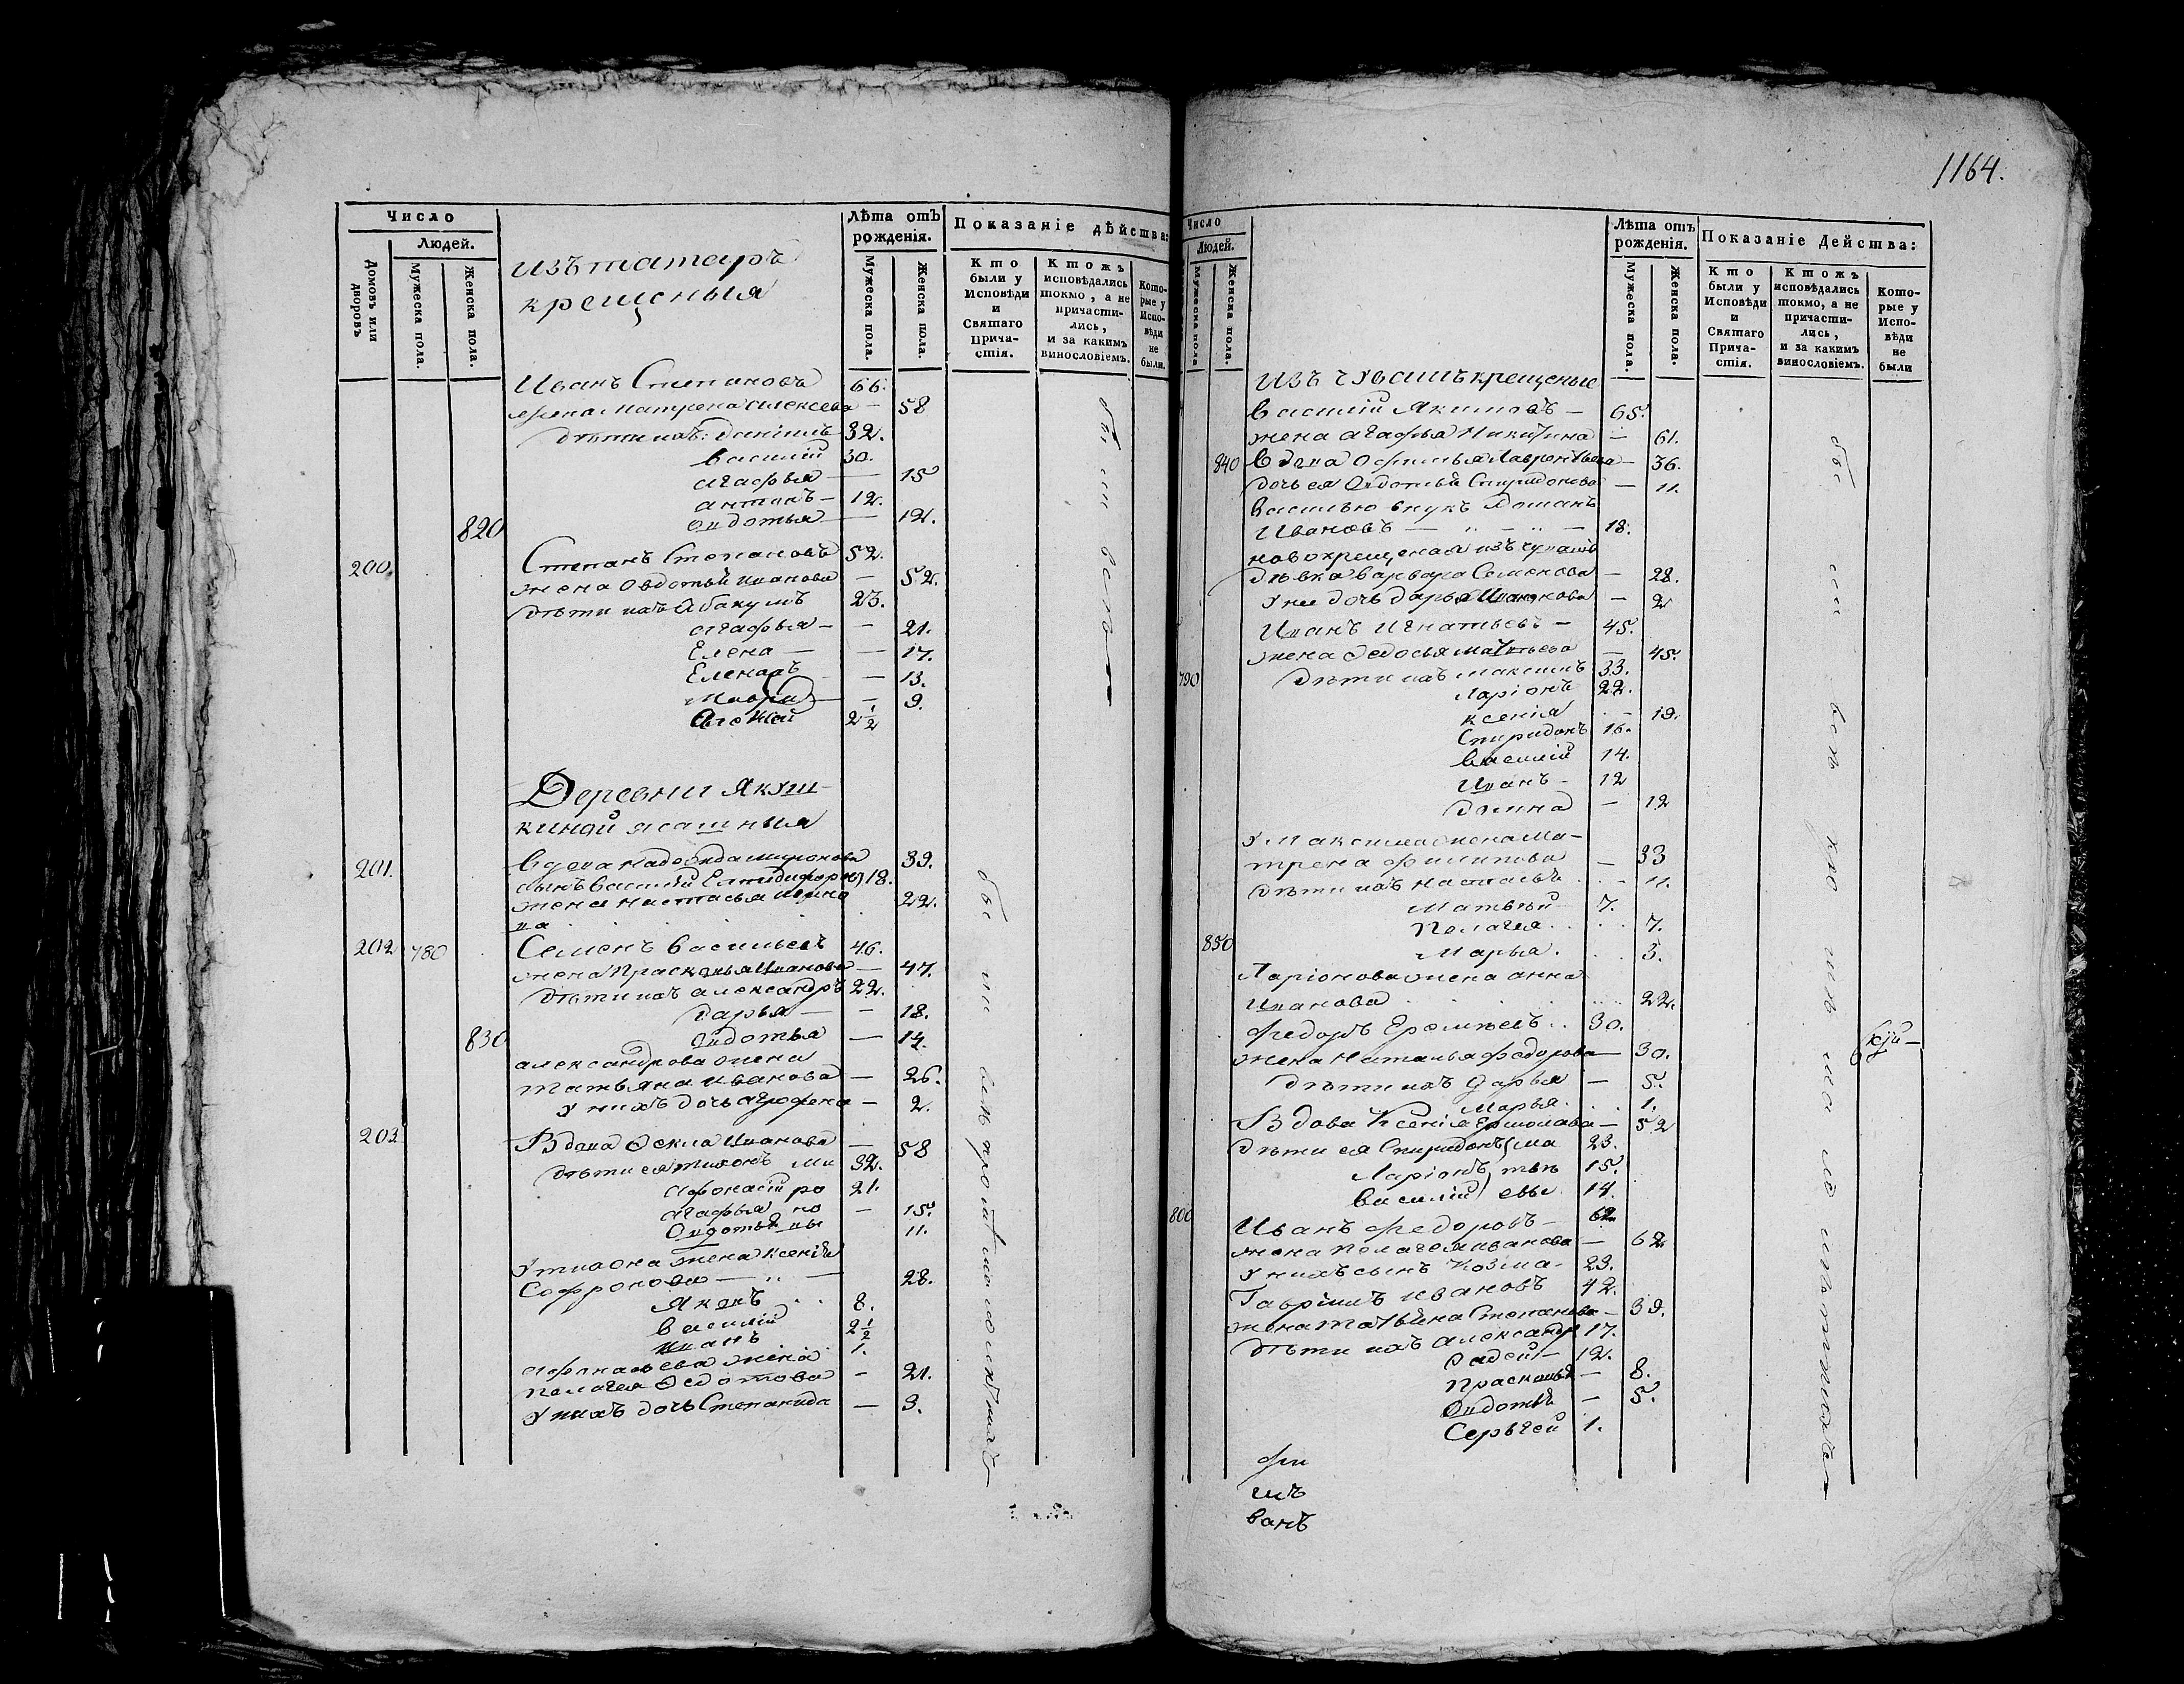 1164.
Число
Людей.
Домовъ или дворовъ
Мужеска пола.
Женска пола.
изъ татаръ
крещеныя
Лѣта отъ рожденія.
Мужеска пола.
Женска пола.
Показаніе дѣйства:
Кто были у Исповѣди и Святаго Причастія.
Ктожъ исповѣдались токмо, а не причастились, и за какимъ винословіемъ.
Которые у Исповѣди не были.
Иванъ Степановъ 66.
жена Матрена Алексева — 58
дѣти ихъ: Данилъ 32.
Василій 30.
Агафья — 15
Антонъ — 12.
820 Овдотья — 12.
200. Степанъ Степановъ 52.
жена Овдотья Иванова — 52.
дѣти ихъ Абакумъ 23.
Агафья — — 21.
Елена — — 17.
— 13.
— 9.
2 1/2
Деревни Якуш-
киной ясашныя
201. Вдова Надежда Миронова 39.
сынъ Василій 18.
жена Настасья 22.
ва
202 780 Семенъ Васильевъ 46.
жена Прасковья Иванова — 47.
дѣти ихъ Александръ 22.
Дарья — — 18.
830 Овдотья — 14.
Александрова жена
Татьяна Иванова — 26.
У нихъ дочь Агрофена — 2.
203 Вдова Ѳекла Иванова — 58
дѣти ея Тихонъ ми 32.
Афонасій ро 21.
Агафья но — 15.
Овдотья вы 11.
У Тихона жена Ксенія
Софронова — — 28.
Яковъ 8.
Василій 2 1/2
Иванъ 1.
Афонасьева жена
Пелагея Ѳедотова — 21.
У нихъ дочь Степанида — 3.
Число
Людей.
Мужеска пола
Женска пола.
Лѣта отъ рожденія.
Мужеска пола.
Женска пола.
Показаніе Действа:
Кто были у Исповѣди и Святаго Причастія.
Ктожъ исповѣдались токмо, а не причастились, и за какимъ винословіемъ.
Которые у Исповѣди не были
изъ чувашъ крещеные
Василій Якимовъ — 65.
жена Агафья Никитина — 61.
840 Вдова Офимья Лаврентьева — 36.
дочь ея Овдотья Спиридонова — 11.
Василью внукъ
Ивановъ — — 18.
новокрещеная изъ чувашъ
дѣвка Варвара Семенова — 28.
У нее дочь Дарья Иванова — 2
Иванъ Игнатьевъ — 45.
жена Ѳедосья Матвѣева — 45.
790 дѣти ихъ Максимъ 33.
Ларіонъ 22.
Ксенія — 19.
Спиридонъ 16.
Василій 14.
Иванъ — 12
Домна — 12
У Максима жена Ма-
трена Филипова — 33
дѣти ихъ Настасья 11.
Матвѣй 7.
Пелагея 7.
850 Марья. 3.
Ларіонова жена Анна
Иванова 22.
Федоръ 30.
жена Наталья Федорова — 30.
дѣти ихъ Дарья — 5.
Марья 1.
Вдова Ксенія Ермолаева — 52
дѣти ея Спиридонъ ма 23.
Ларіонъ твѣ 15.
Василій евы 14.
800 Иванъ Федоровъ — 62
жена Пелагея Иванова — 62
У нихъ сынъ Козма — 23.
Гаврилъ Ивановъ 42.
жена Татьяна Степанова — 39.
дѣти ихъ Александр 17.
Фадей — 12.
Прасковья — 8.
Овдотья — 5.
Сергѣй 1.